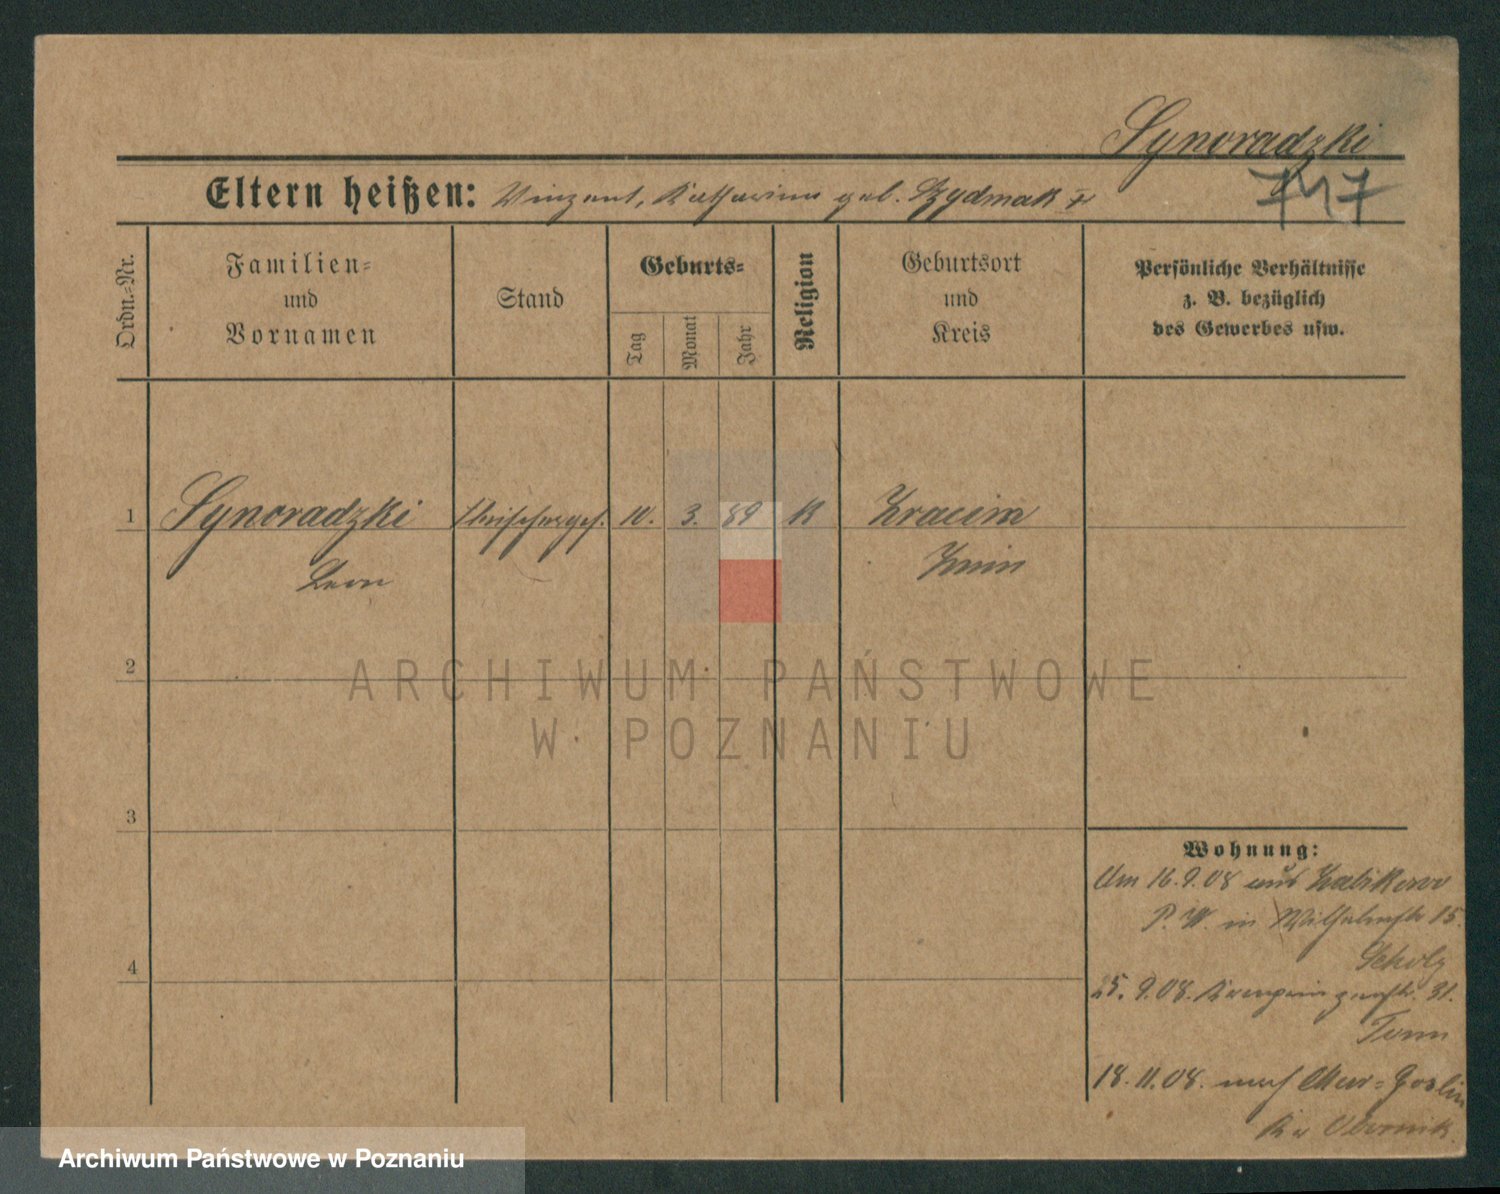 Synoradzki
Eltern heißen: Vinzent, Katharina geb. Szydmak
747
Ordn.=Nr.
Familien=
und
Vornamen
Stand
Geburts=
Tag
Monat
Jahr
Religion
Geburtsort
und
Kreis
Persönliche Verhältnisse
z. B. bezüglich
des Gewerbes usw.
1 Synoradzki Fleischerges. 10. 3. 89 K
Leon Znin
2
3
4
ARCHIWUM PAŃSTWOWE
W POZNANIU
Wohnung:
Am 16.9.08 aus Zabikowo
P. W. in Wilhelmstr 15.
Scholz
25. 9.08. 31.
18.11.08. nach Mur=Goslin
Kr Obornik.
Archiwum Państwowe w Poznaniu